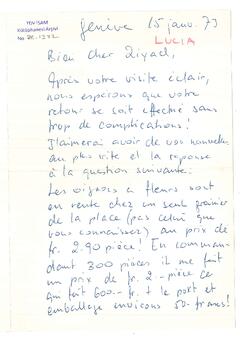 TEV İSAM
Kütüphanesi Arşivi
No
Genève 15 janv. 73
LUCIA
Bien cher Ziyad,
Après votre visite éclair,
nous espérons que votre
retour se soit effectué sans
trop de complications!
J'aimerai avoir de vos nouvelles
au plus vite et la réponse
à la question suivante:
Les oignons à fleurs sont
en vente chez un seul grainier
de la place (pas celui que
vous connaissez) au prix de
fr. 2.90 pièce! En comman-
dant 300 pièces il me fait
un prix de fr. 2.- pièce ce
qui fait 600.- fr. + le port et
emballage environs 50.- francs!